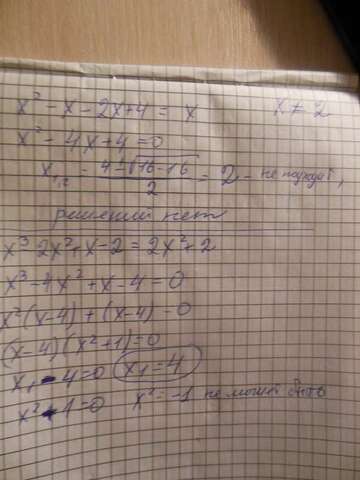 x² - x - 2x + 4 = x x ≠ 2
x² - 4x + 4 = 0
x₁,₂ = (4 ± √(16 - 16)) / 2 = 2 - не подход,
решений нет
x³ 2x² + x - 2 = 2x² + 2
x³ - 4x² + x - 4 = 0
x² (x - 4) + (x - 4) = 0
(x - 4) (x² + 1) = 0
x₁ - 4 = 0 x₁ = 4
x² + 1 = 0 x² = -1 не может быть